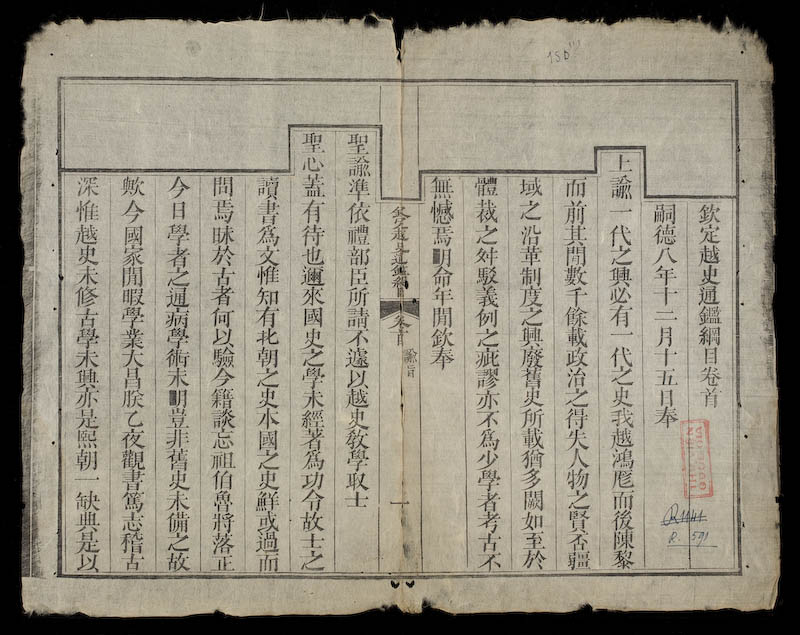 欽定越史通鑑綱目卷首
嗣德八年十二月十五日奉
上諭一代之興必有一代之史我越鴻厖而後陳黎
而前其間數千餘載政治之得失人物之賢否疆
域之沿革制度之興廢舊史所載猶多闕如至於
體裁之舛駁義例之疵謬亦不爲少學者考古不
無憾焉明命年閒欽奉
欽定越史通鑑綱目 卷首 諭旨 一
聖諭準依禮部臣所請不遽以越史敎學取士
聖心蓋有待也邇來國史之學未經著爲功令故士之
讀書爲文惟知有北朝之史本國之史鮮或過而
問焉昧於古者何以驗今籍談忘祖伯魯將落正
今日學者之通病學術未明豈非舊史未備之故
歟今國家閒暇學業大昌朕乙夜觀書篤志稽古
深惟越史未修古學未興亦是熙朝一缺典是以
150
R.1141
R. 591